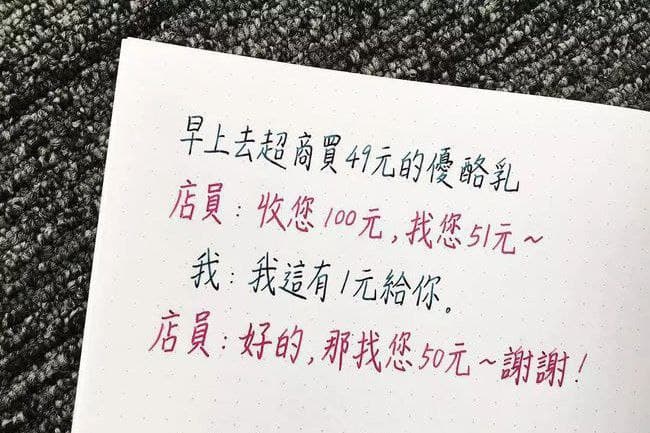 早上去超商買49元的優酪乳
店員：收您100元，找您51元~
我：我這有1元給你。
店員：好的，那找您50元~謝謝！